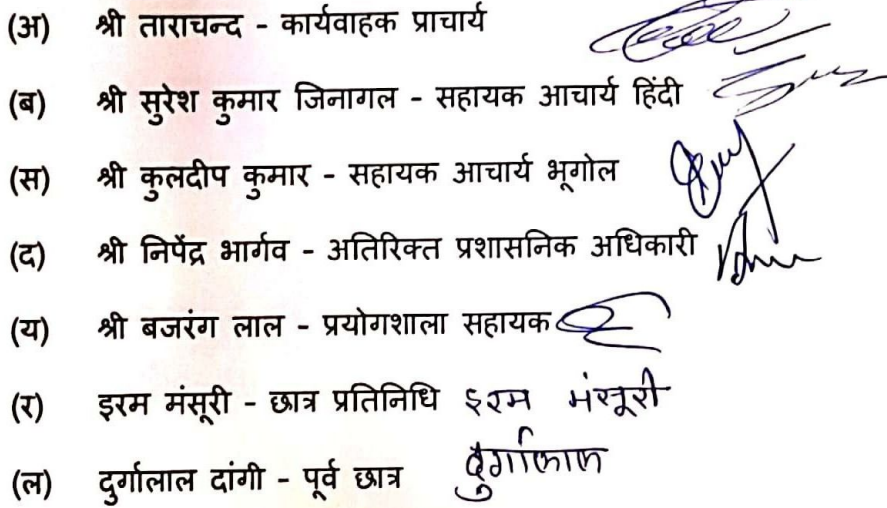 (अ) श्री ताराचन्द - कार्यवाहक प्राचार्य
(ब) श्री सुरेश कुमार जिनागल - सहायक आचार्य हिंदी
(स) श्री कुलदीप कुमार - सहायक आचार्य भूगोल
(द) श्री निपेंद्र भार्गव - अतिरिक्त प्रशासनिक अधिकारी
(य) श्री बजरंग लाल - प्रयोगशाला सहायक
(र) इरम मंसूरी - छात्र प्रतिनिधि इरम मंसूरी
(ल) दुर्गालाल दांगी - पूर्व छात्र दुर्गालाल